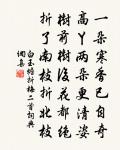 一朵寒香已自奇
高丫两朵更清姿
树前树后花都绝
折了南枝折北枝
白玉蟾折梅二首词典
网集